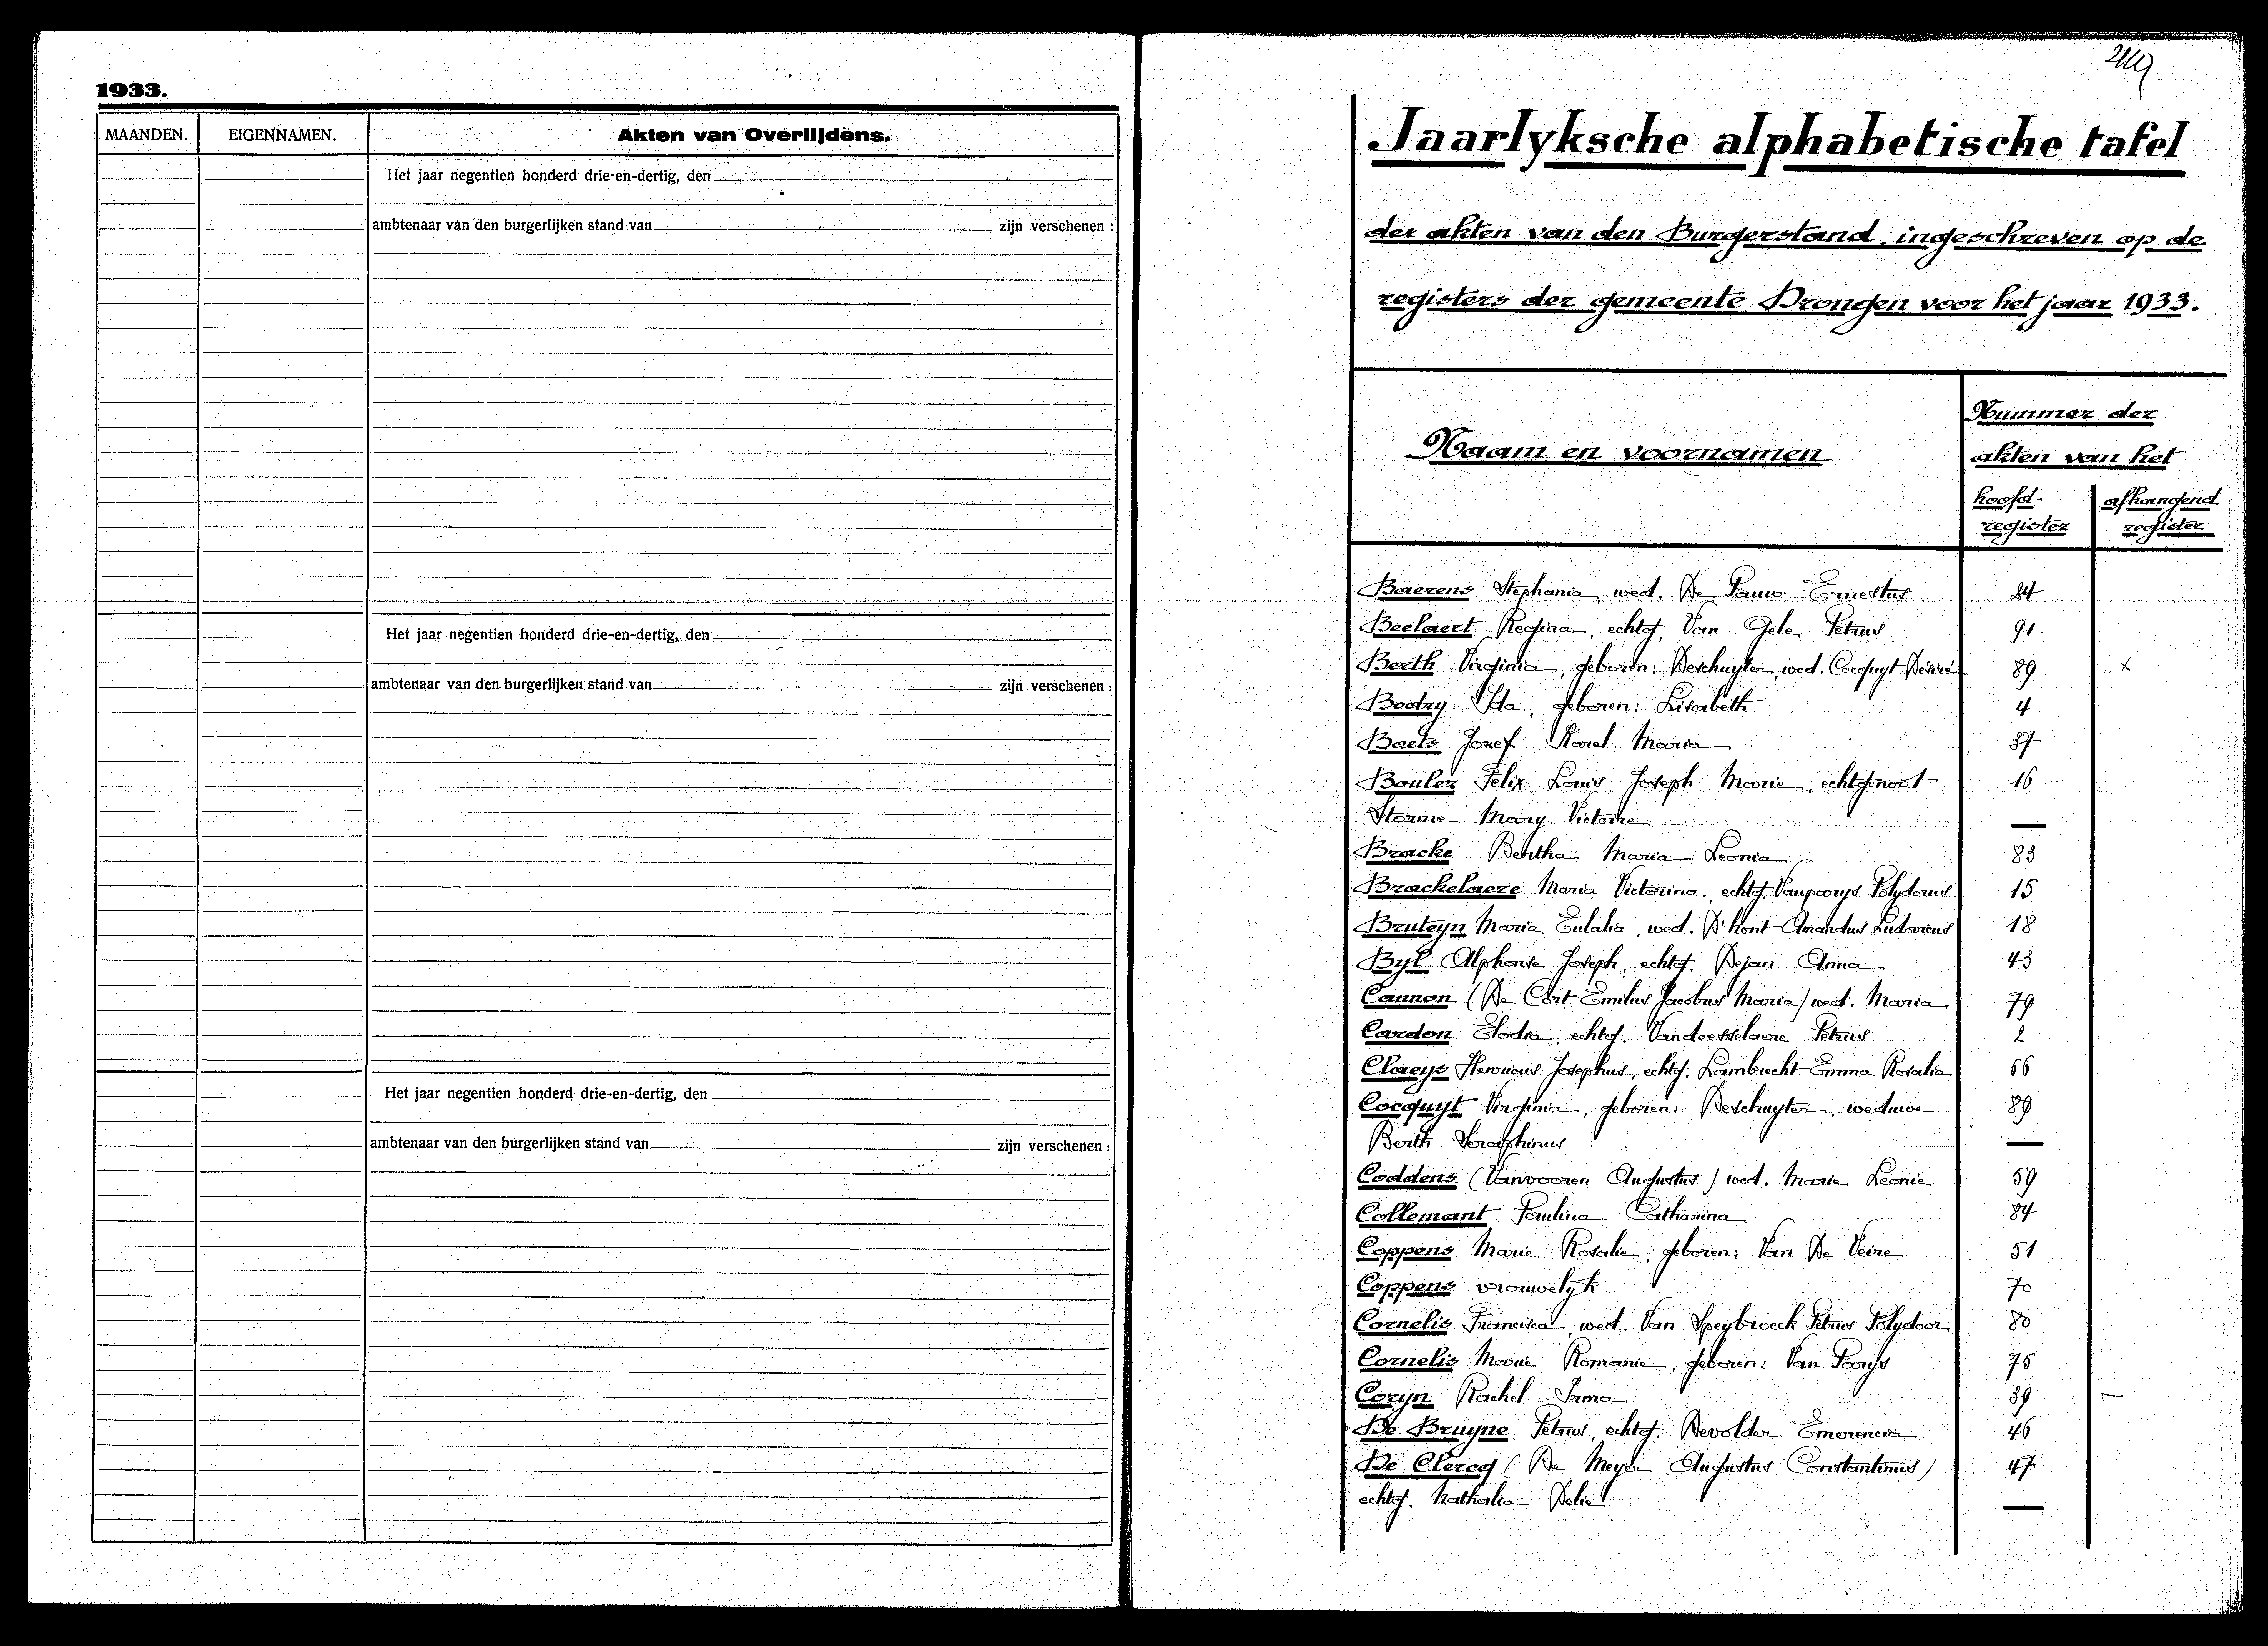 1933.
MAANDEN. EIGENNAMEN. Akten van Overlijdens.
Het jaar negentien honderd drie-en-dertig, den
ambtenaar van den burgerlijken stand van zijn verschenen :
Het jaar negentien honderd drie-en-dertig, den
ambtenaar van den burgerlijken stand van zijn verschenen :
Het jaar negentien honderd drie-en-dertig, den
ambtenaar van den burgerlijken stand van zijn verschenen :
Jaarlyksche alphabetische tafel
der akten van den Burgerstand, ingeschreven op de
registers der gemeente Drongen voor het jaar 1933.
Naam en voornamen
Nummer der
akten van het
hoofd- afhangend
register register
Baerens Stephania, wed. De Pauw Ernestus 24
Beelaert Regina, echtg. Van Gele Petrus 91
Berth Virginia, geboren: Deschuyter, wed. Cocquyt Désiré 89 x
Bodry Ida, geboren: Lisabeth 4
Boets Jozef Karel Maria 37
Boulez Felix Louis Joseph Marie, echtgenoot 16
Storme Mary Victoire —
Bracke Bertha Maria Leonia 83
Brackelaere Maria Victorina, echtg. Vanpoorys Polydorus 15
Bruteyn Maria Eulalia, wed. D'hont Amandus Ludovicus 18
Byl Alphonse Joseph, echtg. Dejan Anna 43
Cannon (De Cort Emilus Jacobus Maria) wed. Maria 79
Cardon Elodia, echtg. Vandoesselaere Petrus 2
Claeys Henricus Josephus, echtg. Lambrecht Emma Rosalia 66
Cocquyt Virginia, geboren: Deschuyter, weduwe 89
Berth Seraphinus —
Coddens (Vanvooren Augustus) wed. Marie Leonie 59
Collemant Paulina Catharina 84
Coppens Marie Rosalie, geboren: Van De Veire 51
Coppens vrouwelyk 70
Cornelis Francisca, wed. Van Speybroeck Petrus Polydoor 80
Cornelis Marie Romanie, geboren: Van Poorys 75
Coryn Rachel Irma 39 —
De Bruyne Petrus, echtg. Devolder Emerencia 46
De Clercq (De Meyer Augustus Constantinus) 47
echtg. Nathalia Delie —